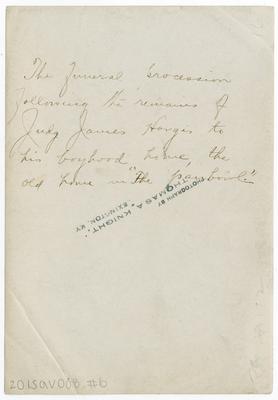 The Funeral Procession
Following the remains of
Judy James Hargis to
his boyhood home, the
old home in "the panbowl"
PHOTOGRAPH BY
THOMAS A. KNIGHT,
LEXINGTON, KY.
201SAV008 #6